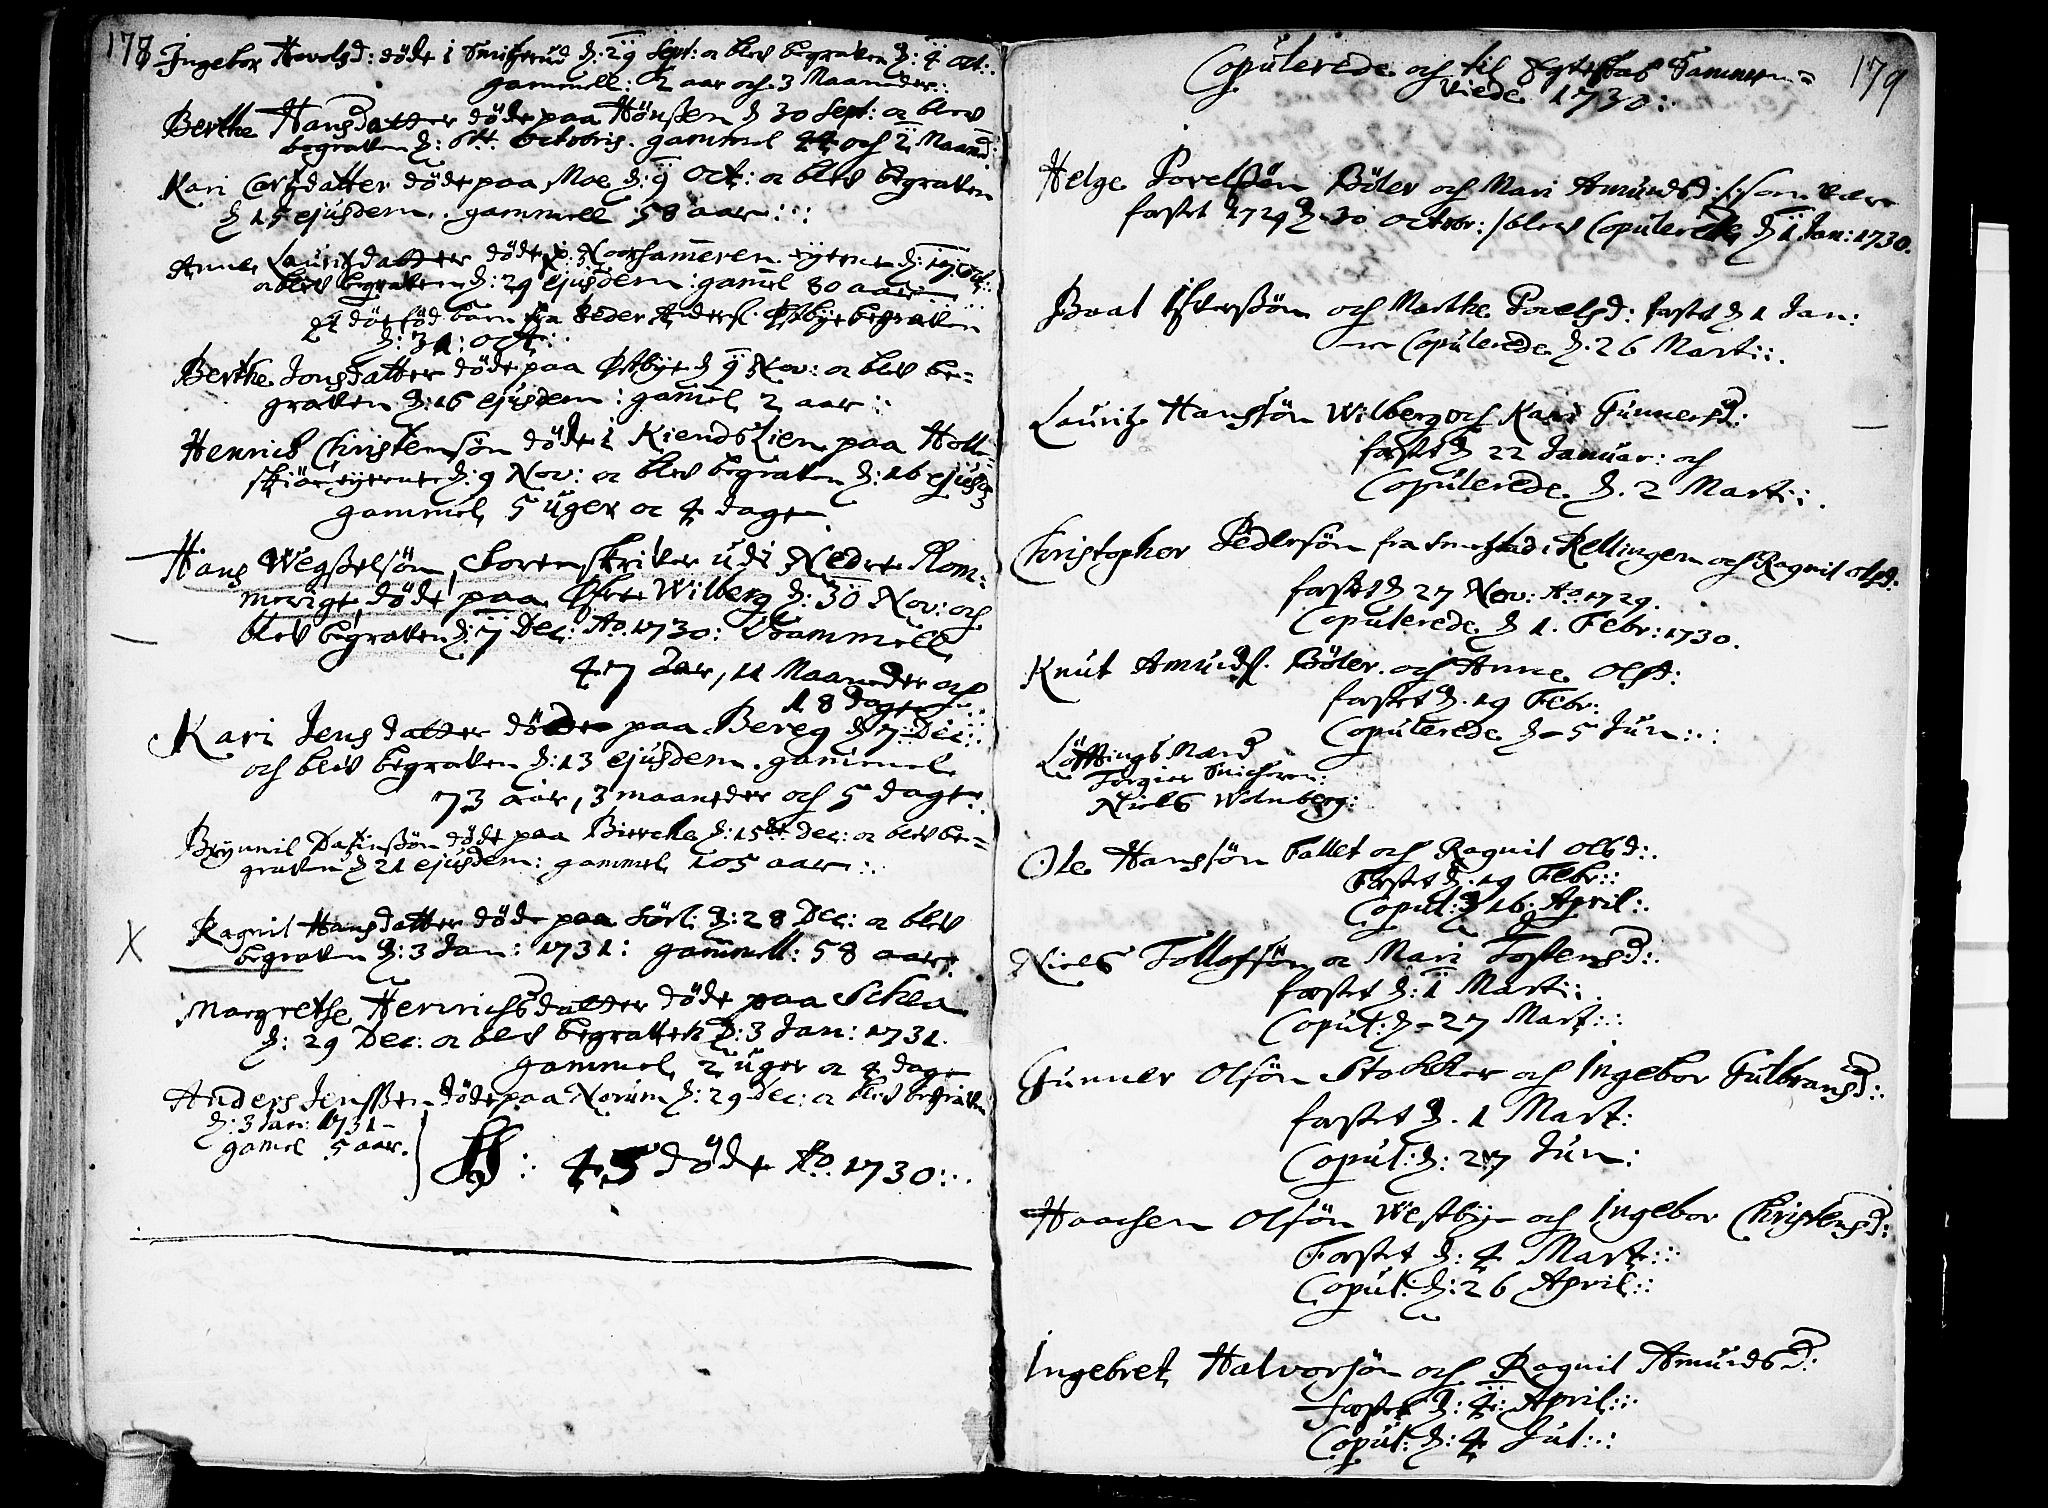 178
Ingebor Havolsd: döde i Smiszrud d: 29 Sept: oc blev begraven d: 4 Oct:
gammell: 2 aar och 3 Maaneder:
Berthe Hansdatter döde paa Hönssen d 30 Sept: oc blev
begraven d: 8tt octobris. gammel 44 och 2 Maand:
Kari Carlsdatter döde paa Moe d: 9 Oct: oc blev begraven
d 15 ejusdem. gammell 58 aar:
Anne Lauritzdatter döde p. eyerne d: 17 Oct:
oc blev begraven d: 29 ejusdem: gamel 80 aar
Et dötföd barn fra Peder Anders. Østbye begraven
d: 31: Oct:
Berthe Jonsdatter döde paa Østbye d 9 Nov: oc blev be=
graven d: 16 ejusdem: gamel 2 aar:
Henrich Christensön döde i Kiendslien paa Holl=
skiær eyerne d: 9 Nov: oc blev begraven d: 16 ejusd
gammel 5 uger oc 4 dage
Hans Wegszelsön, Sorenskriver udi Nedre Rom=
merige, döde paa Øfre Wilberg d: 30 Nov: och
blev begraven d: 7 Dec: Ao. 1730: Gammell
47 Aar, 11 Maaneder och
18 dage
Kari Jensdatter döde paa Bereg d 7: Dec:
och blev begraven d: 13 ejusdem. gammel
73 aar, 3 maaneder och 5 dage
Brynnil Dafinssön döde paa Biercke d: 15de Dec: oc blev be=
graven d 21 ejusdem: gammel 105 aar:
X
Ragnil Hansdatter döde paa Sörl: d: 28 Dec: oc blev
begraven d: 3 Jan: 1731: gammell: 58 aar
Margrethe Henrichsdatter döde paa Schea
d: 29 Dec: oc blev begraven d: 3 Jan: 1731.
gammel 2 uger oc 4 dage
Anders Jenssen döde paa Norum d: 29 Dec: oc blev begraven
d: 3 Jan: 1731-
gamel 5 aar.
45 döde Ao. 1730:
179
Copulerede och til Egteskab Sammen=
viede 1730:
Helge Povelssön Böler och Mari Amundsd: /: som vare
fæstet 1729 d. 30 octobr: / blev Copulerede d 1 Jan: 1730.
Boal Ifverssön och Marthe Povelsd: fæstet d 1 Jan:
Copulerede d. 26 Marti:
Lauritz Hanssön Wilberg och Kari Gunnersd:
fæstet d 22 Januar: och
Copulerede d. 2 Marti:
Christopher Pedersön fra Rellingen och Ragnil olsd:
fæstet d 27 Nov: Ao. 1729.
Copulerede d 1. Febr: 1730.
Knut Amunds. Böler och Anne Olsd:
fæstet d. 19 Febr:
Copulerede d 5 Jun:
Löftings Mænd
Torgier Smicheren:
Niels Wolnberg:
Ole Hanssön Fallet och Ragnil olsd:
Fæstet d. 19 Febr:
Coput: d 16 April:
Niels Tollefsön oc Mari Tostensd:
fæstet d: 1 Marti:
Coput: d 27 Mart:
Gunner Olsön Stokker och Ingebor Gulbransd:
fæstet d. 1 Mart:
Coput: d: 27 Jun:
Haachen Olsön Westbye och Ingebor Christensd:
Fæstet d: 4 Mart:
Coput: d: 26 April:
Ingebret Halvorsön och Ragnil Amundsd:
fæstet d: 4: April:
Coput: d: 4 Jul: